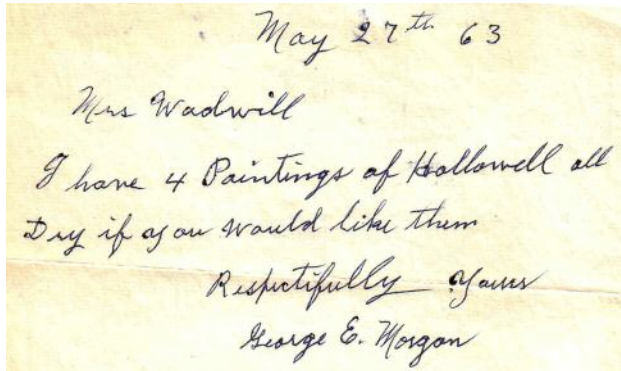 May 27th 63
Mrs Wadwill
I have 4 Paintings of Hallowell all
Dry if you would like them
Respectifully Yours
George E. Morgan